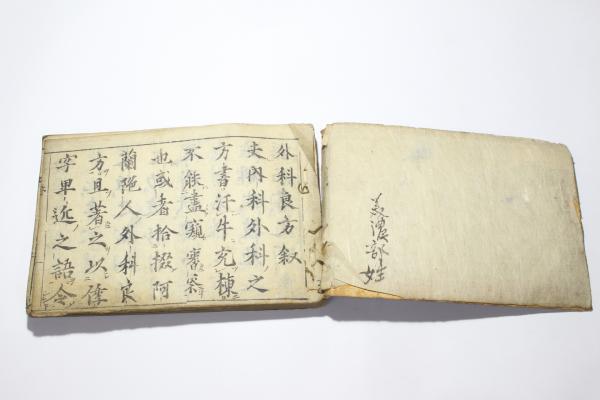 美濃部姓
外科良方叙
夫內科外科之
方書汗牛充棟
不能盡窺審察
也或者拾掇阿
蘭陁人外科良
方且著之以倭
字卑近之語令